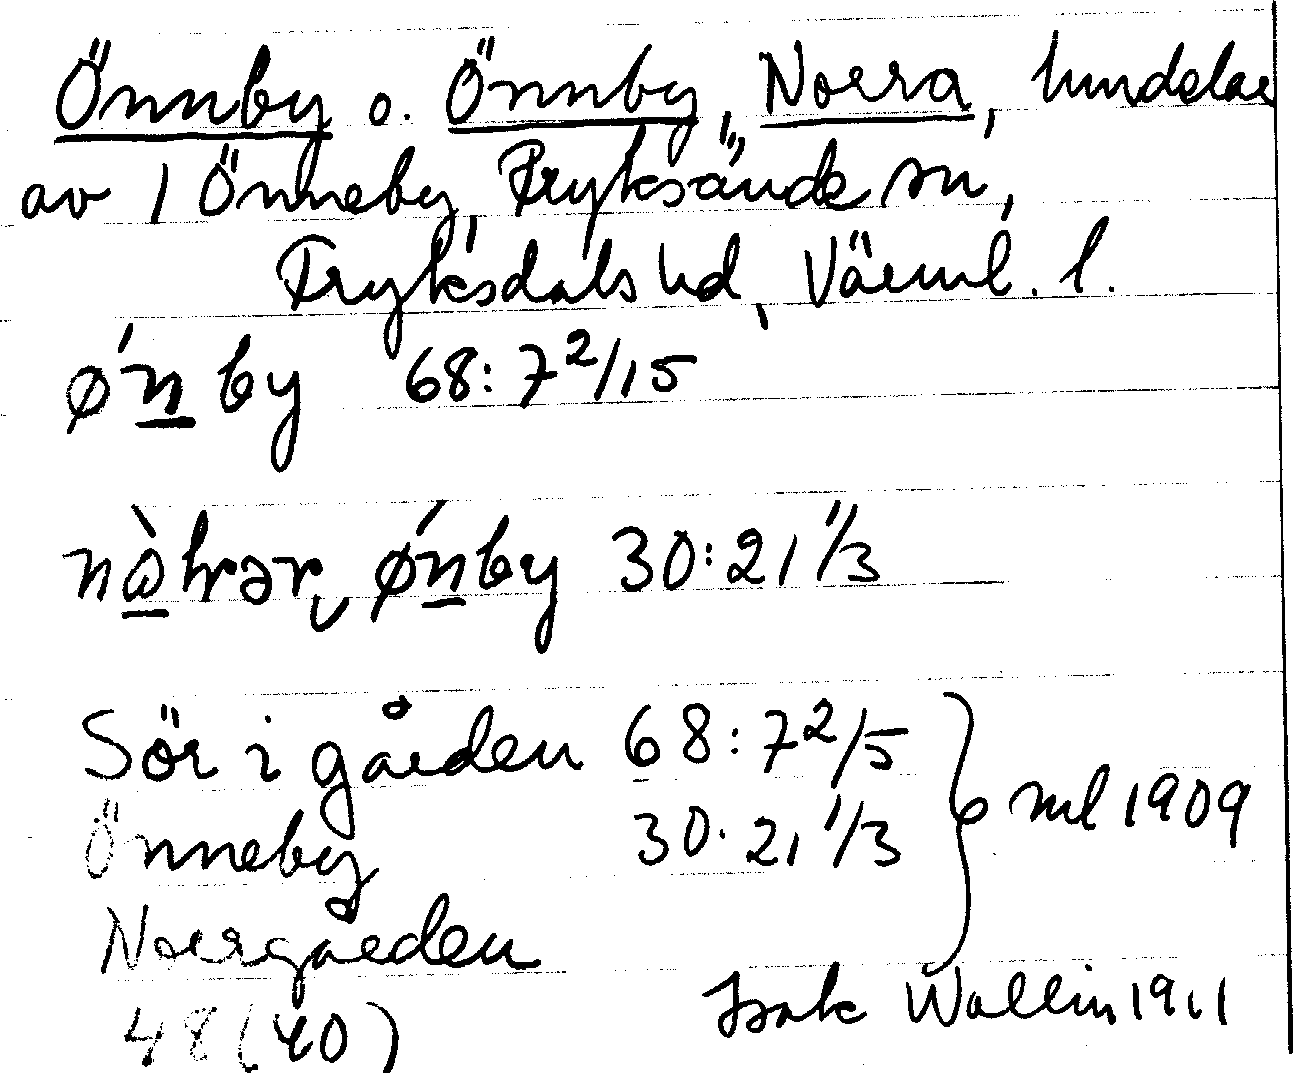 Önnby o. Önnby, Norra, hmdelar
av 1 Önneby, Fryksände sn,
Fryksdals hd, Värml. l.
ǿn̲by 68:7 2/15
nɑ̲̀hrər ǿn̲by 30:21 1/3
Sör i gården 68:7 2/5
Önneby 30:21 1/3
ml 1909
Norrgården
48 (40)
Isak Wallin 1911